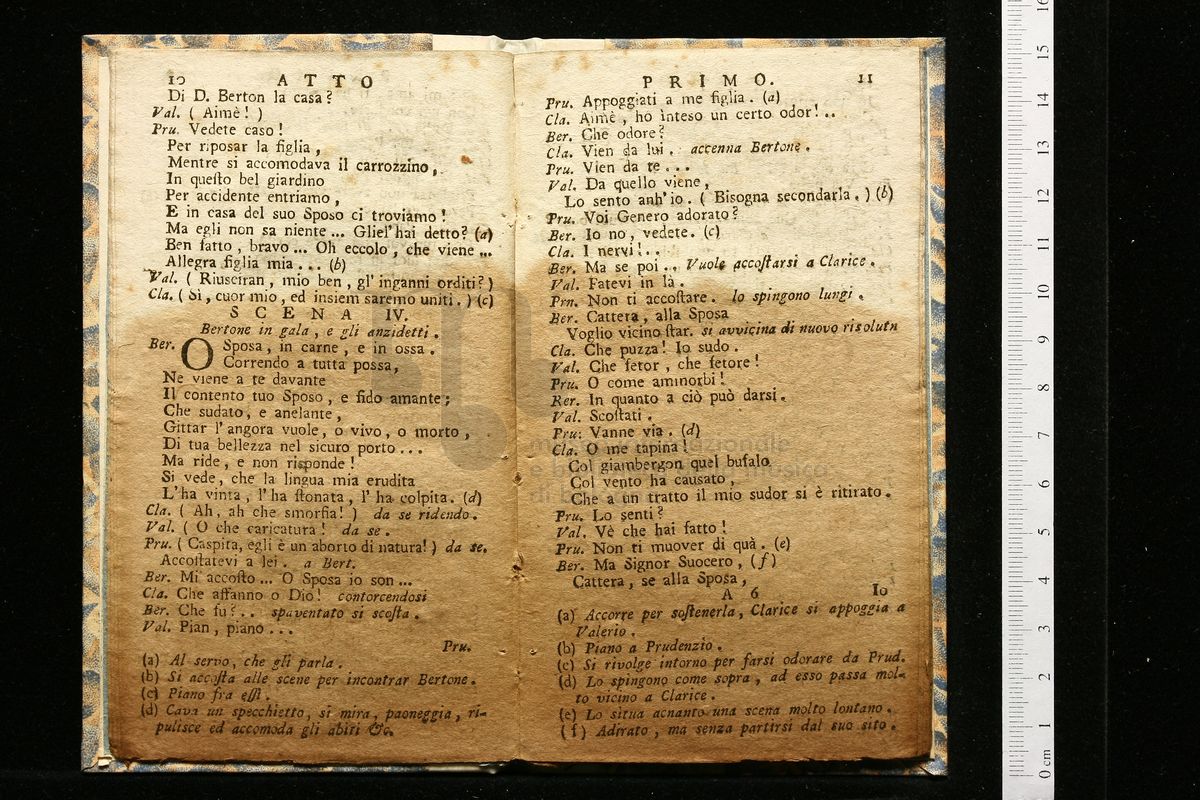 10 ATTO
Di D. Berton la casa?
Val. ( Aimè! )
Pru. Vedete caso!
Per riposar la figlia,
Mentre si accomodava il carrozzino,
In questo bel giardino
Per accidente entriamo,
E in casa del suo Sposo ci troviamo!
Ma egli non sa niente ... Gliel' hai detto? (a)
Ben fatto, bravo ... Oh eccolo, che viene ...
Allegra figlia mia ... (b)
Val. ( Riusciran, mio ben, gl' inganni orditi? )
Cla. ( Sì, cuor mio, ed insiem saremo uniti. ) (c)
SCENA IV.
Bertone in gala, e gli anzidetti.
Ber. O Sposa, in carne, e in ossa.
Correndo a tutta possa,
Ne viene a te davante
Il contento tuo Sposo, e fido amante;
Che sudato, e anelante,
Gittar l' angora vuole, o vivo, o morto,
Di tua bellezza nel sicuro porto ...
Ma ride, e non risponde!
Si vede, che la lingua mia erudita
L' ha vinta, l' ha stonata, l' ha colpita. (d)
Cla. ( Ah, ah che smorfia! ) da se ridendo.
Val. ( O che caricatura! da se.
Pru. ( Caspita, egli è un aborto di natura! ) da se.
Accostatevi a lei. a Bert.
Ber. Mi accosto ... O Sposa io son ...
Cla. Che affanno o Dio! contorcendosi
Ber. Che fu? .. spaventato si scosta.
Val. Pian, piano ...
Pru.
(a) Al servo, che gli parla.
(b) Si accosta alle scene per incontrar Bertone.
(c) Piano fra essi.
(d) Cava un specchietto, si mira, paoneggia, ri-
pulisce ed accomoda gli abiti &c.
PRIMO. 11
Pru. Appoggiati a me figlia. (a)
Cla. Aimè, ho inteso un certo odor! ..
Ber. Che odore?
Cla. Vien da lui. accenna Bertone.
Pru. Vien da te ...
Val. Da quello viene,
Lo sento anh' io. ( Bisogna secondarla. ) (b)
Pru. Voi Genero adorato?
Ber. Io no, vedete. (c)
Cla. I nervi! ..
Ber. Ma se poi .. Vuole accostarsi a Clarice.
Val. Fatevi in là.
Prn. Non ti accostare. lo spingono lungi.
Ber. Cattera, alla Sposa
Voglio vicino star. si avvicina di nuovo risolutn
Cla. Che puzza! Io sudo.
Val. Che fetor, che fetore!
Pru. O come ammorbi!
Ber. In quanto a ciò può darsi.
Val. Scostati.
Pru. Vanne via. (d)
Cla. O me tapina!
Col giambergon quel bufalo
Col vento ha causato,
Che a un tratto il mio sudor si è ritirato.
Pru. Lo senti?
Val. Vè che hai fatto!
Pru. Non ti muover di quà. (e)
Ber. Ma Signor Suocero, (f)
Cattera, se alla Sposa,
A 6 Io
(a) Accorre per sostenerla, Clarice si appoggia a
Valerio.
(b) Piano a Prudenzio.
(c) Si rivolge intorno per farsi odorare da Prud.
(d) Lo spingono come sopra, ad esso passa mol-
to vicino a Clarice.
(e) Lo situa acnanto una scena molto lontano.
(f) Adirato, ma senza partirsi dal suo sito.
0 cm 1 2 3 4 5 6 7 8 9 10 11 12 13 14 15 16